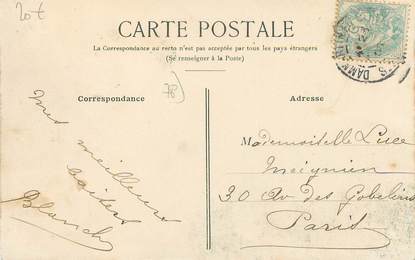 20t
CARTE POSTALE
La Correspondance au recto n'est pas acceptée par tous les pays étrangers
(Se renseigner à la Poste)
78
Correspondance
Adresse
Mes meilleurs
baisers
Blanche
Mademoiselle Luce
Meignien
30 Av des Gobelins
Paris